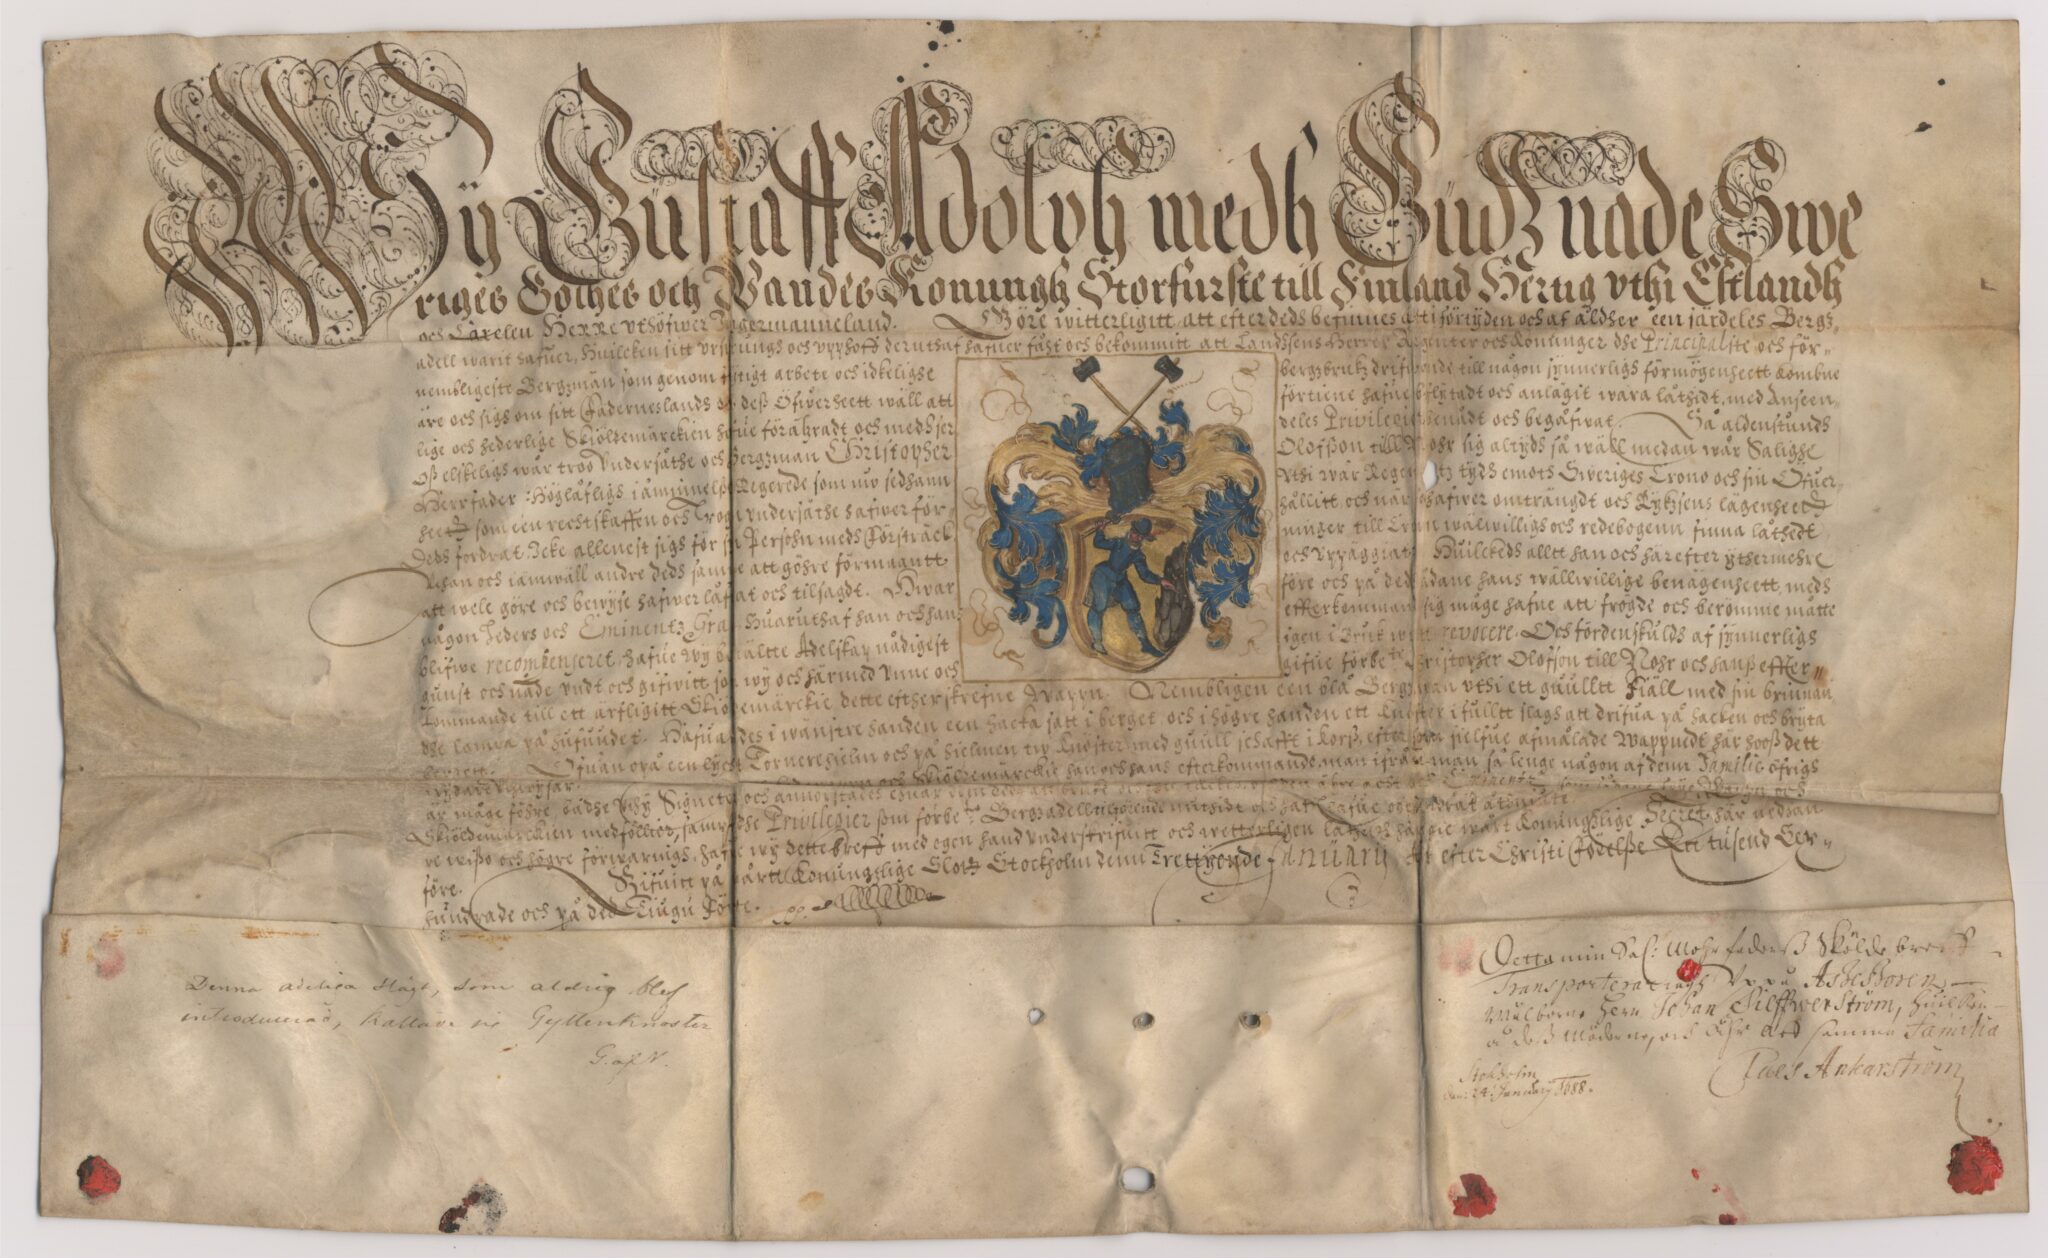 Wÿ Gustaff Adolph medh Gudz nade Swe
riges Göthes och Wandes Konungh Storfurste till Finland Hertig vthi Estlandh
och Carelen Herre vthöfwer Ingermanneland. Göre witterligitt att efter deds befinnes att i förtijden och af åldher een järdeles Bergz,
adell warit hafuer, Huilcken sitt vrsprungh och vpphoff deruthaf hafuer fåtz och bekommitt att Landssens Herrer Regenter och Konunger dhe Principaliste och för-
nembligeste Bergzmän som genom flitigt arbete och idkelighe bergzbrukz drifwande till någon synnerligh förmögenheett kombne
äre och sigh om sitt Fäderneslandh och deß Öfwerheett wäll att förtiene hafue beflijtadt och anlägit wara låthidt, med Anseen-
lige och hederlige Skiöldemärckien hafue förähradt och medh sär deles Privilegier benådt och begåfwat. Så aldenstundh
Oß elskeligh wår troo Vndersåthe och Bergzman Christopher Olofsson till Nohr sigh altijdh så wäll medan wår Salighe
Herrfader Höglåfligh i åminnelße Regerede som nw sedhann vthi wår Regementz tijdh emoth Sweriges Crono och sin Öfuer-
heedt som een rechtskaffen och Trogen vndersåthe hafwer för- hållitt, och när så hafwer omträngdt och Rykzsens lägenheedt
deds fordrat, Icke allenest sigh för sin Persohn medh Försträck- ninger till Cronan wälwilligh och redebogenn finna låthedt
Vthan och iämwäll andre deds samme att göhre förmagntt och vppäggiat, Huilckeds alltt han och här efter ythermehre
att wele göre och bewijse hafwer låfwat och tilsagdt. Hwar före och på ded sådane hans wällwillige benägenheett, medh
någon heders och Eminentz Grad Huaruthaf han och hans effterkommande sig måge hafue att frögde och berömme måtte
blifwe recompenseret, hafue wij bemältte Adelskap nådigest igen i Bruk welet revocere. Och fördenskuldh af synnerligh
gunst och nåde vndt och gifwitt som wij och härmed vnne och gifue förbe:te Christopher Olofsson till Nohr och hanß effter-
kommande till ett arfligitt Skiöldemärckie dette efther skrefne Wapen. Nembligen een blå Bergzman vthi ett guulltt Fiäll med sin brinnan
dhe lampa på hufuudet. Hafuandes i wänstre handen een hacka satt i berget, och i högre handen ett Knöster i fulltt slagh att drifua på hacken och bryta
Ofuan opå een lyckt Tornerehielm och på hielmen twå Knöster med guull schafft i Korß, efter som sielfue afmålade Wappnedt här hooß dett
Skiöldemärckie han och hans efterkommande, man ifrån man så lenge någon af denn Familie öfrigh
är måge föhre, bådhe vthij Signeter och annorstädes
Skiöldemärckien medföllier, samt dhe Privilegier som förbe:te Bergzadell
re wißo och högre förwarnigh, hafue wij dette breff med ogen hand vnderskrifuitt och wetterligen låthedt hängie wårt Konungzlige Secret här nedhan
före. Gifuitt på wårtt Konungzlige Slott Stockholm denn Trettijonde Januarij Åhr efter Christi Födelße Ett tusend Sex-
hundrade och på ded Tiugu Före.
Denna adeliga Slägt, som aldrig blef
introducerad, kallade sig Gyllenknoster
G. af N.
Detta min Sal: Mohr faders Skölde breff
Transporterar iagh Vppå
Wälborne Herr Johan Silffwerström, huilken
å deß Möderne, och Ähr aff samma Familia
Claes Ankarström
Stokholm
den: 24: January 1688.